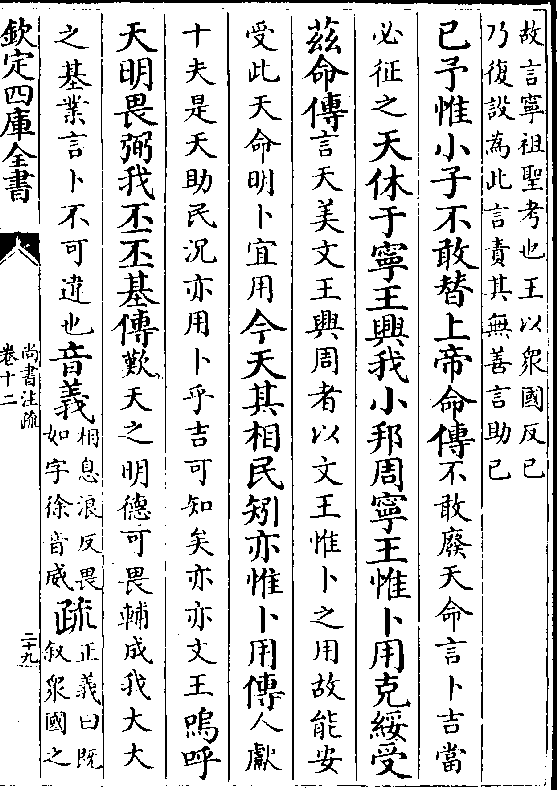 故言寧祖聖考也王以衆國反己
乃復設為此言責其無善言助己
已予惟小子不敢替上帝命傳不敢廢天命言卜吉當
必征之天休于寧王興我小邦周寧王惟卜用克綏受
茲命傳言天美文王興周者以文王惟卜之用故能安
受此天命明卜宜用今天其相民矧亦惟卜用傳人獻
十夫是天助民況亦用卜乎吉可知矣亦亦文王嗚呼
天明畏弼我丕丕基傳歎天之明德可畏輔成我大大
之基業言卜不可違也音義相息浪反畏
如字徐音威疏正義曰既
叙衆國之
欽定四庫全書
尚書注疏
卷十二
二十九